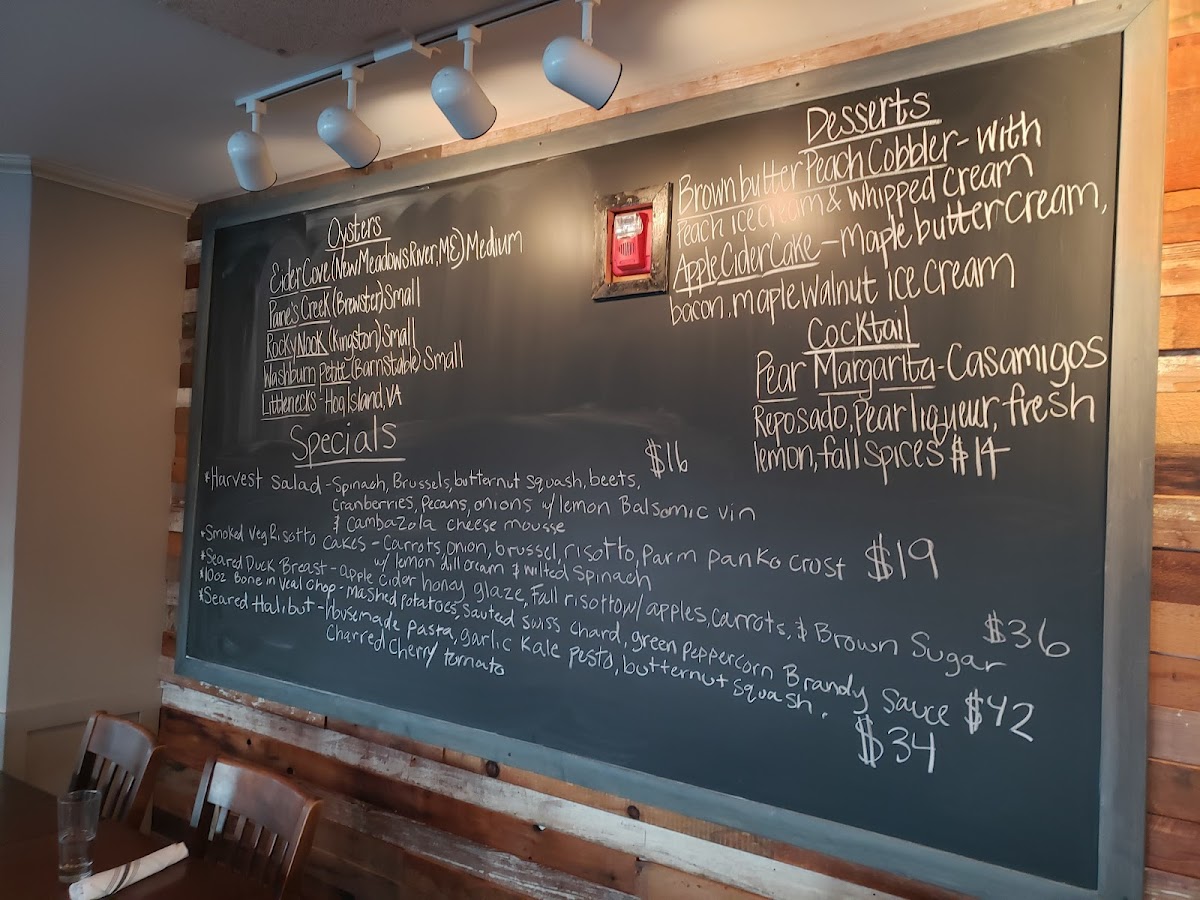 Oysters
Eider Cove (New Meadows River, ME) Medium
Paine's Creek (Brewster) Small
Rocky Nook (Kingston) Small
Washburn Petite (Barnstable) Small
Littlenecks - Hog Island, VA
Specials
*Harvest Salad - Spinach, Brussels, butternut squash, beets, $16
Cranberries, pecans, onions w/ lemon Balsamic vin
& Cambazola cheese mousse
*Smoked Veg Risotto Cakes - Carrots, onion, brussel, risotto, Parm panko crust $19
w/ lemon dill cream & wilted spinach
*Seared Duck Breast - apple cider honey glaze, Fall risotto w/ apples, carrots, & Brown Sugar $36
*10oz Bone in Veal Chop - Mashed potatoes, Sauteed swiss chard, green peppercorn Brandy Sauce $42
*Seared Halibut - Housemade pasta, garlic kale pesto, butternut squash, $34
Charred Cherry tomato
Desserts
Brown butter Peach Cobbler - With
Peach ice cream & whipped cream
Apple Cider Cake - Maple buttercream,
bacon, maple walnut ice cream
Cocktail
Pear Margarita - Casamigos
Reposado, Pear liqueur, fresh
lemon, fall spices $14